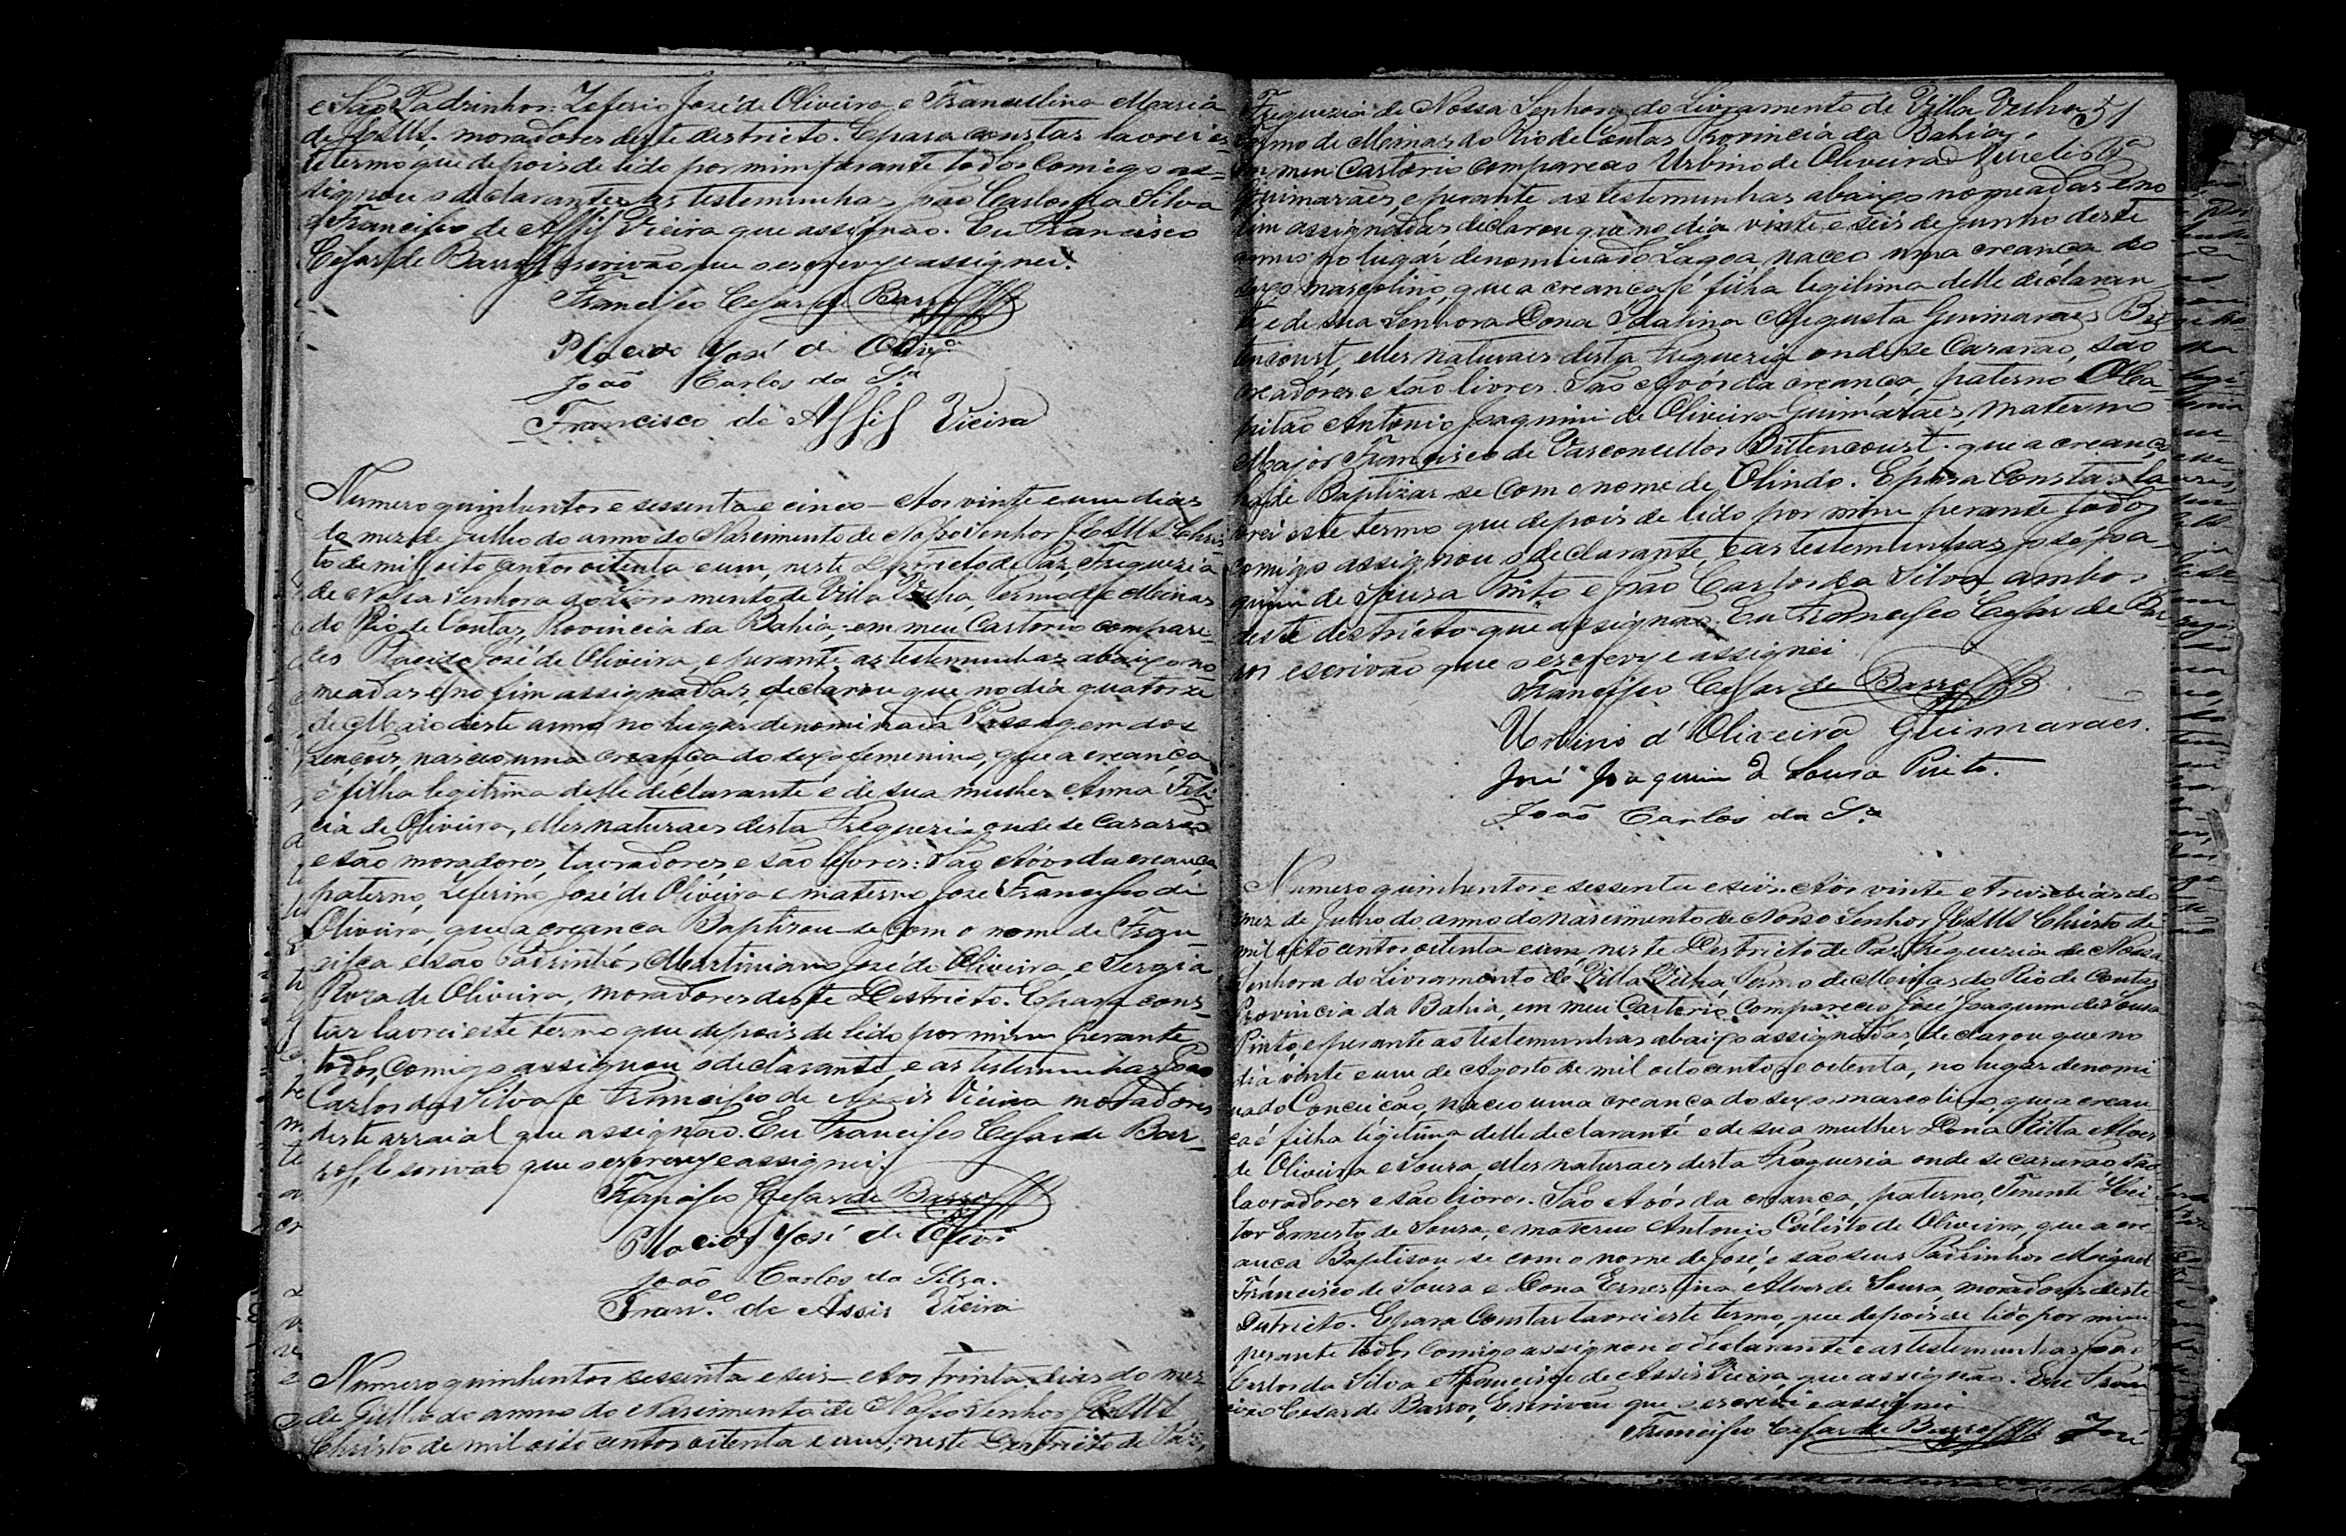 e São Padrinhos: Zeferino José de Oliveira e Francellina Maria
de JESUS. moradores deste districto. E para constar lavrei es-
te termo que depois de lido por mim perante todos comigo as=
signou o declarante e as testemunhas João Carlos da Silva
e Francisco de Assis Vieira que assignão. Eu Francisco
Cesar de Barros Escrivão que o escrevy e assignei.
Francisco Cesar de Barros
Placido José de Olivrª
João Carlos da Sª
Francisco de Assis Vieira
Numero quinhentos e sessenta e cinco - Aos vinte e um dias
do mez de Julho do anno do Nascimento de Nosso Senhor JESUS Chris-
to de mil oito centos oitenta e um, neste Districto de Paz, Freguezia
de Nossa Senhora do Livramento de Villa Velha, Termo de Minas
do Rio de Contas, Provincia da Bahia, em meu Cartorio compare-
ceo Placido José de Oliveira, e perante as testemunhas abaixo no
meadas e no fim assignadas, declarou que no dia quatorze
de Maio deste anno no lugar denominada Passagem dos
Lençoes, nasceo uma creança do sexo femenino, que a creança
é filha legitima delle declarante e de sua mulher Anna Feli
cia de Oliveira, elles naturaes desta Freguezia onde se casarão
e são moradores, lavradores, e são livres: São Avós da creança
paterno, Zeferino José de Oliveira e materno José Francisco de
Oliveira, que a creança Baptizou-se com o nome de
e são Padrinhos Martiniano José de Oliveira, e Sergia
Roza de Oliveira, moradores deste Destricto. E para cons-
tar lavrei este termo que depois de lido por mim perante
todos, comigo assignou o declarante, e as testemunhas João
Carlos da Silva e Francisco de Assis Vieira moradores
deste arraial que assignão. Eu Francisco Cesar de Bar-
ros, Escrivão que o escrevy e assignei.
Francisco Cesar de Barros
Placido José de Olivrª
João Carlos da Silva.
Fran.co de Assis Vieira
Numero quinhentos sessenta e seis - Aos trinta dias do mez
de Julho do anno do Nascimento de Nosso Senhor JESUS
Christo de mil oito centos oitenta e um, neste Destricto de Paz,
Freguezia de Nossa Senhora do Livramento de Villa Velha
Termo de Minas do Rio de Contas Provincia da Bahia,
em meu Cartorio compareceo Urbino de Oliveira
Guimarães, e perante as testemunhas abaixo nomeadas e no
fim assignadas, declarou que no dia vinte e seis de Junho deste
anno no lugar denominado Lagoa, naceo uma creança do
sexo mascolino, que a creança é filha legitima delle declaran-
te e de sua Senhora Dona Idalina Augusta Guimarães Bit
tencourt, elles naturaes desta Freguezia onde se casarão, são
creadores e são livres. São Avós da creança, paterno Ca
pitão Antonio Joaquim de Oliveira Guimarães, materno
Major Francisco de Vasconcellos Bittencourt. que a creança
ha de Baptizar-se com o nome de Olindo. E para constar la
vrei este termo que depois de lido por mim perante todos
comigo assignou o declarante, e as testemunhas José Joa-
quim de Souza Pinto e João Carlos da Silva, ambos
deste destricto que assignão. Eu Francisco Cesar de Bar
ros escrivão que o escrevy e assignei
Francisco Cesar de Barros
Urbino d' Oliveira Guimarães.
José Joaquim d Sousa Pinto.
João Carlos da Sª
Numero quinhentos e sessenta e seis. Aos vinte e tres dias do
mez de Julho do anno do nascimento de Nosso Senhor JESUS Christo de
mil oito centos oitenta e um, neste Destricto de Paz Freguezia de Nossa
Senhora do Livramento de Villa Velha, Termo de Minas do Rio de Contas
Provincia da Bahia, em meu Cartorio compareceo José Joaquim de Sousa
Pinto, e perante as testemunhas abaixo assignadas, declarou que no
dia vinte e um de Agosto de mil oito centos e oitenta, no lugar denomi
nado Conceicão, naceo uma creança do sexo mascolino, que a crean
ca é filha legitima delle declarante e de sua mulher Dona Ritta Alves
de Oliveira e Sousa, elles naturaes desta Freguezia onde se casarão são
lavradores e são livres. São Avós da creança, paterno, Tenente Hei
tor Ernesto de Souza, e materno Antonio Calisto de Oliveira, que a cre
ança Baptisou-se com o nome de José, e são seus Padrinhos Miguel
Francisco de Souza e Dona Ernestina Alves de Souza, moradores deste
Destricto. E para constar lavrei este termo, que depois de lido por mim
perante todos comigo assignou o declarante e as testemunhas João
Carlos da Silva e Francisco de Assis Vieira, que assignão. Eu Fran
cisco Cesar de Barros, Escrivão que o escrevi e assignei
Francisco Cesar de Barros José